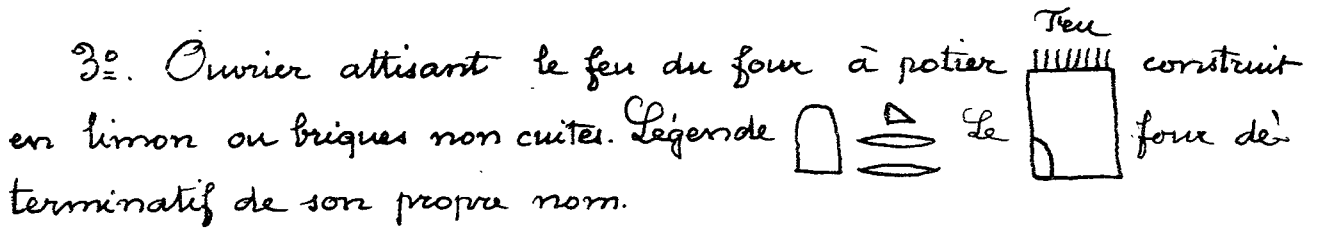 Feu
3º. Ouvrier attisant le feu du four à potier construit
en limon ou briques non cuites. Légende Le four dé-
terminatif de son propre nom.